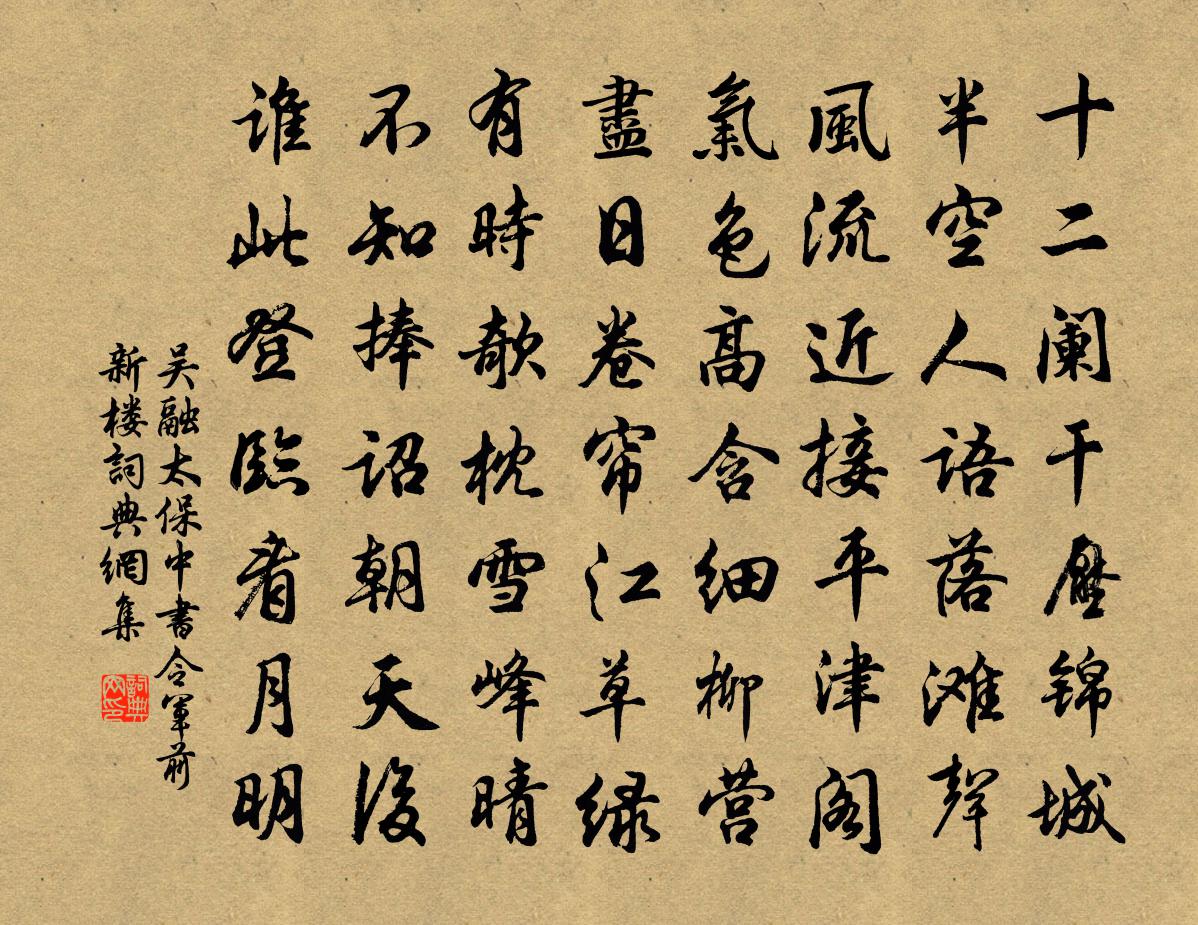 十二阑干壓锦城
半空人語落滩聲
風流近接平津阁
氣色高含细柳营
盡日卷帘江草绿
有時欹枕雪峰晴
不知捧诏朝天後
谁此登臨看月明
吴融太保中書令軍前
新楼詞典網集
詞典网印